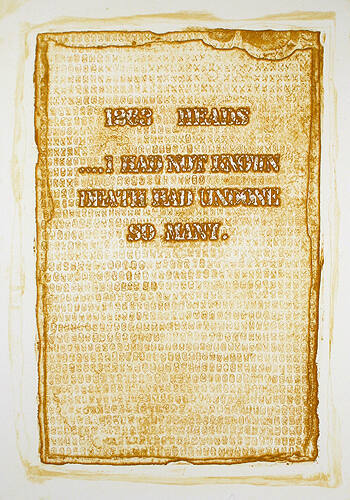 HEADS
....I HAD NOT KNOWN
DEATH HAD UNDONE
SO MANY.